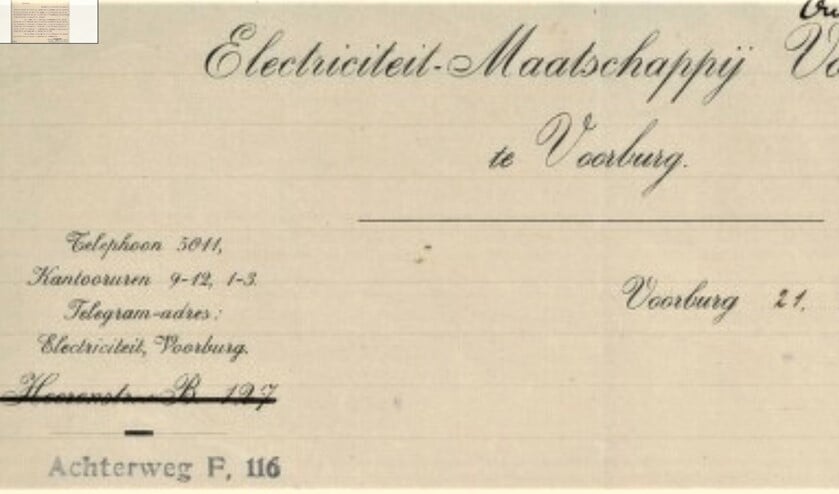 Electriciteit-Maatschappij
te Voorburg.
Telephoon 5011,
Kantooruren 9-12, 1-3.
Telegram-adres:
Electriciteit, Voorburg.
Heerenstr. B. 127
Achterweg F, 116
Voorburg 21.